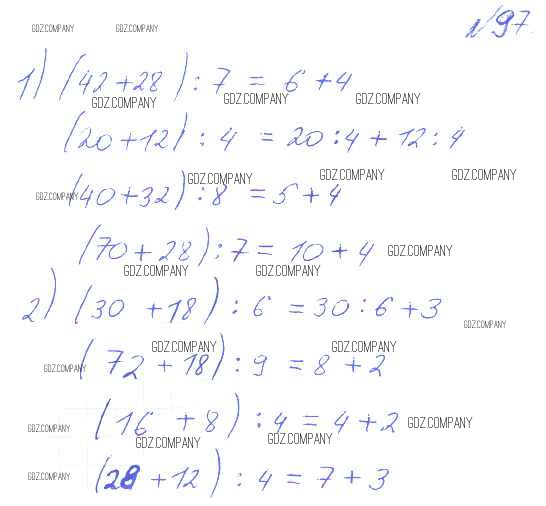 GDZ.COMPANY GDZ.COMPANY №97.
1) (42+28) : 7 = 6+4
GDZ.COMPANY GDZ.COMPANY GDZ.COMPANY
(20+12) : 4 = 20:4+12:4
GDZ.COMPANY GDZ.COMPANY GDZ.COMPANY
GDZ.COMPANY (40+32) : 8 = 5+4
(70+28) : 7 = 10+4 GDZ.COMPANY
GDZ.COMPANY GDZ.COMPANY
2) (30+18) : 6 = 30:6+3
GDZ.COMPANY
GDZ.COMPANY GDZ.COMPANY
GDZ.COMPANY (72+18) : 9 = 8+2
GDZ.COMPANY (16+8) : 4 = 4+2 GDZ.COMPANY
GDZ.COMPANY GDZ.COMPANY
GDZ.COMPANY (28+12) : 4 = 7+3